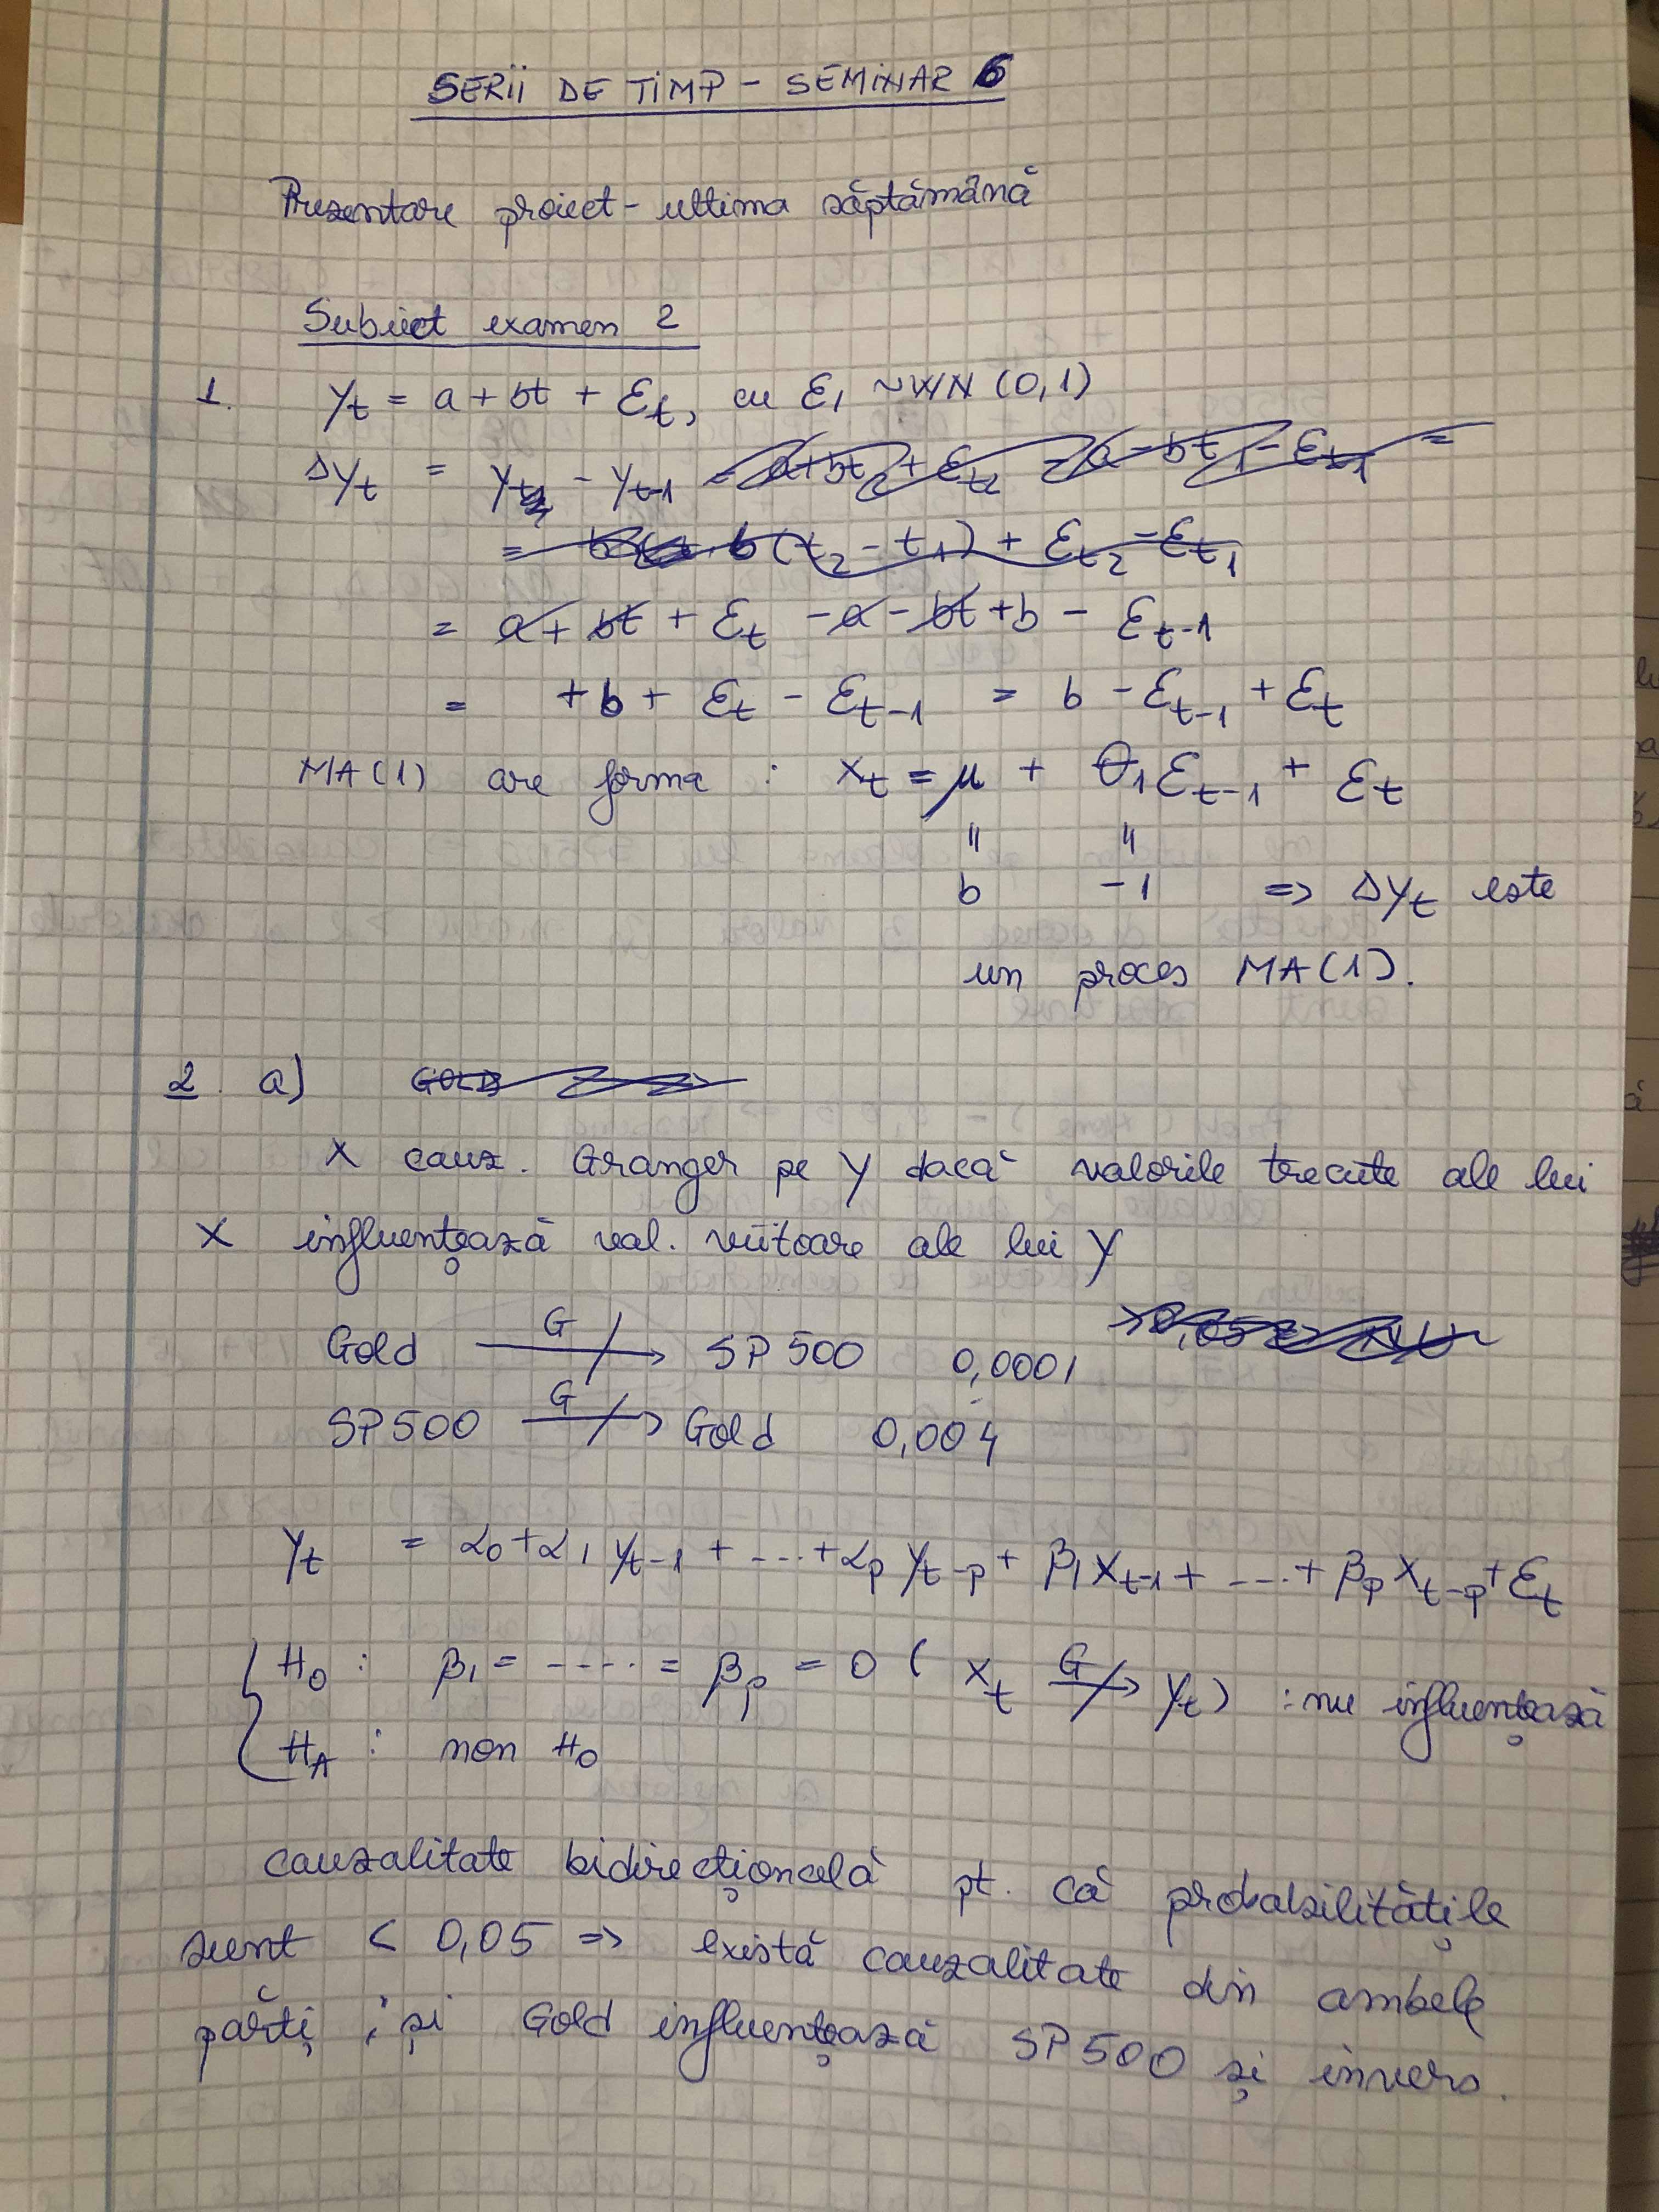 SERII DE TIMP - SEMINAR 6
Prezentare proiect - ultima săptămână
Subiect examen 2
1. yt = a + bt + εt, cu ε1 ~ WN (0,1)
Δyt = yt - yt-1 = a + bt2 + εt2 - a - bt1 - εt1 =
= b(t2 - t1) + εt2 - εt1
= a + bt + εt - a - bt + b - εt-1
= + b + εt - εt-1 = b - εt-1 + εt
MA(1) are forma : xt = μ + θ1εt-1 + εt
" "
b -1 => Δyt este
un proces MA(1).
2. a) GOLD
X cauz. Granger pe Y dacă valorile trecute ale lui
X influențează val. viitoare ale lui Y
Gold —G/→ SP500 0,0001 >0,05 => NU
SP500 —G/→ Gold 0,004
yt = α0 + α1 yt-1 + ... + αp yt-p + β1 xt-1 + ... + βp xt-p + εt
H0 : β1 = ..... = βp = 0 ( xt —G/→ yt) : nu influențează
HA : non H0
cauzalitate bidirecțională pt. că probabilitățile
sunt < 0,05 => există cauzalitate din ambele
părți ; și Gold influențează SP500 și invers.